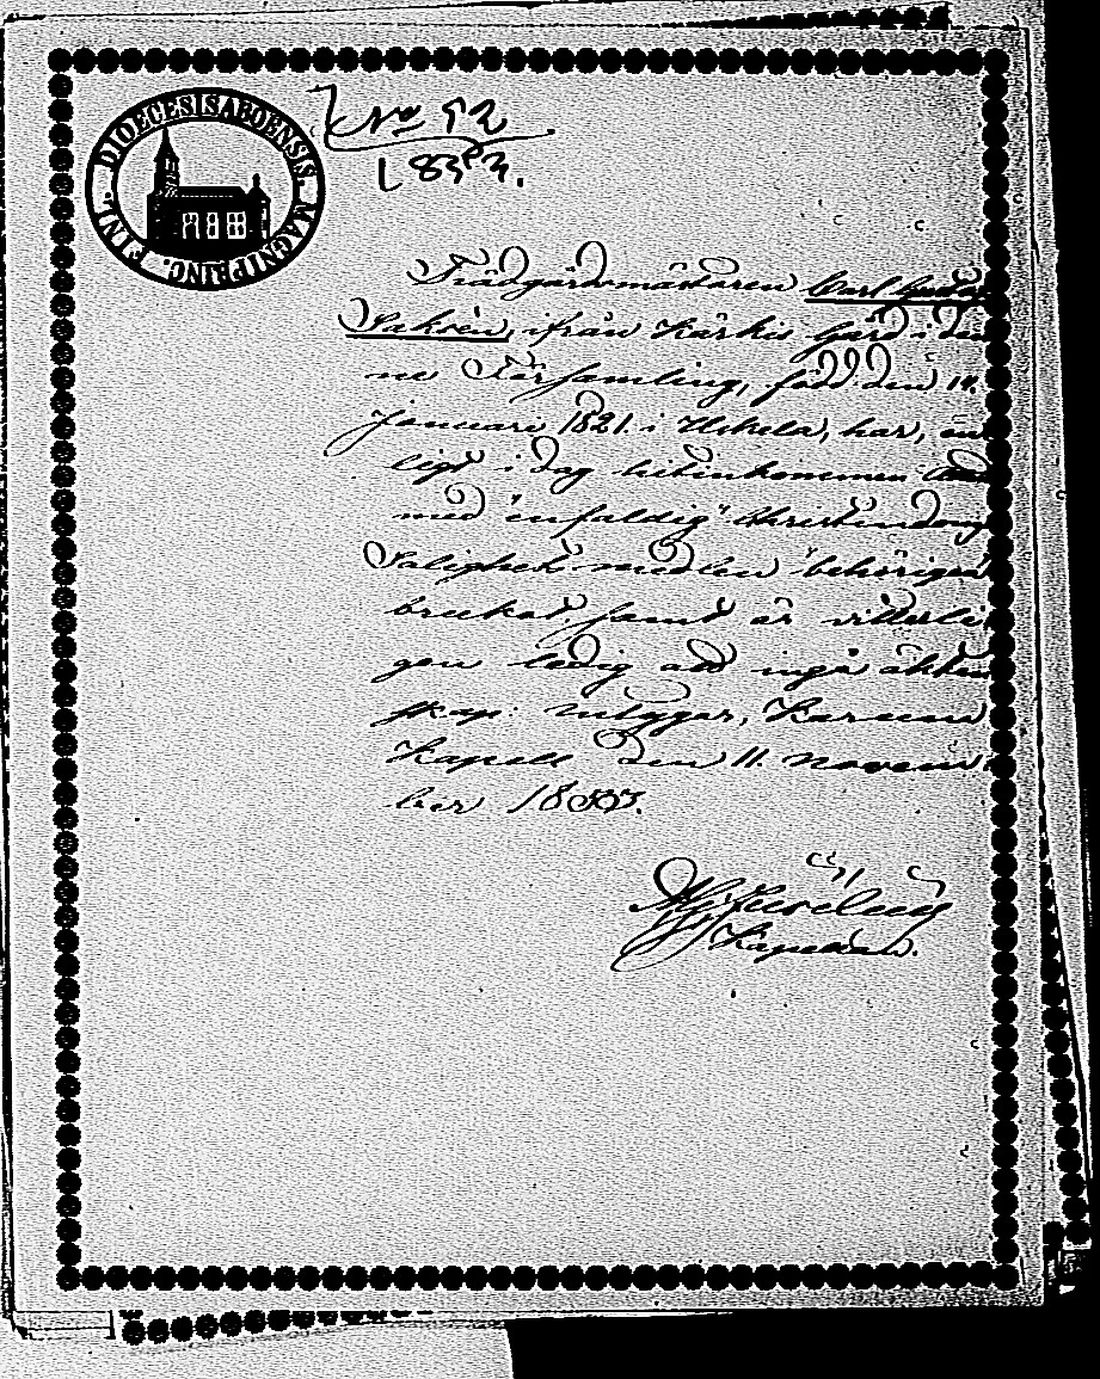 DIOECESIS ABOENSIS. MAGNI PRINC. FINL.
No 92
1853.
Trädgårdsmästaren Carl
Saksén, ifrån Kärkis gård i den
ne Församling, född den 14.
Januari 1821. i Uskela, har, en
ligt i dag hitinkommen
med "enfaldig" Christendoms
Salighets medlen "behörigen
brukat, samt är vitterli
gen ledig att ingå äkten
skap: intygar, Karuna
Kapell den 11. Novem
ber 1853.
Kapellan.